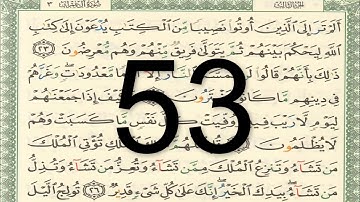 الجزء الثالث سورة آل عمران ٣
أَلَمْ تَرَ إِلَى ٱلَّذِينَ أُوتُوا۟ نَصِيبًا مِّنَ ٱلْكِتَٰبِ يُدْعَوْنَ إِلَىٰ كِتَٰبِ
ٱللَّهِ لِيَحْكُمَ بَيْنَهُمْ ثُمَّ يَتَوَلَّىٰ فَرِيقٌ مِّنْهُمْ وَهُم مُّعْرِضُونَ ٢٣
ذَٰلِكَ بِأَنَّهُمْ قَالُوا۟ مَّعْدُودَٰتٍ وَغَرَّهُمْ
فِى دِينِهِم مَّا كَانُوا۟ فَكَيْفَ إِذَا جَمَعْنَٰهُمْ
لِيَوْمٍ لَّا رَيْبَ فِيهِ وَوُفِّيَتْ كُلُّ نَفْسٍ مَّا كَسَبَتْ وَهُمْ
لَا يُظْلَمُونَ ٱلْمُلْكِ تُؤْتِى ٱلْمُلْكَ
مَن تَشَآءُ وَتَنزِعُ ٱلْمُلْكَ مِمَّن تَشَآءُ وَتُعِزُّ مَن تَشَآءُ وَتُذِلُّ
مَن تَشَآءُ بِيَدِكَ ٱلْخَيْرُ إِنَّكَ عَلَىٰ كُلِّ شَىْءٍ قَدِيرٌ ٢٦ تُولِجُ ٱلَّيْلَ
53